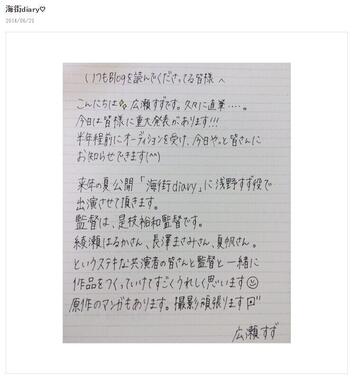 海街diary♡
2014/06/25
いつもBlogを読んでくださってる皆様へ
こんにちは 広瀬すずです。久々に直筆‥‥。
今日は皆様に重大発表があります!!!
半年程前にオーディションを受け、今日やっと皆さんに
お知らせできます(^^)
来年の夏公開「海街diary」に浅野すず役で
出演させて頂きます。
監督は、是枝裕和監督です。
綾瀬はるかさん、長澤まさみさん、夏帆さん。
というステキな共演者の皆さんと監督と一緒に
作品をつくっていけてすごくうれしく思います
原作のマンガもあります。撮影頑張ります
広瀬すず